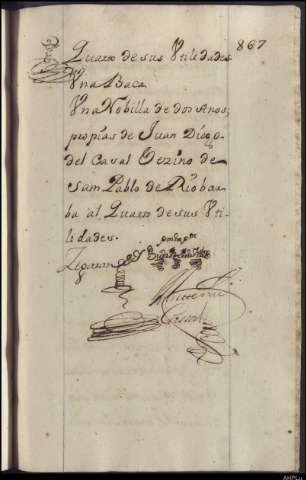 867
Quarto de sus Vtilidades
Vna Baca
Vna Nobilla de dos Anos,
propias de Juan Diego
del Casal Vezino de
sam Pablo de Riobar
ba al Quarto de sus Vti
lidades.